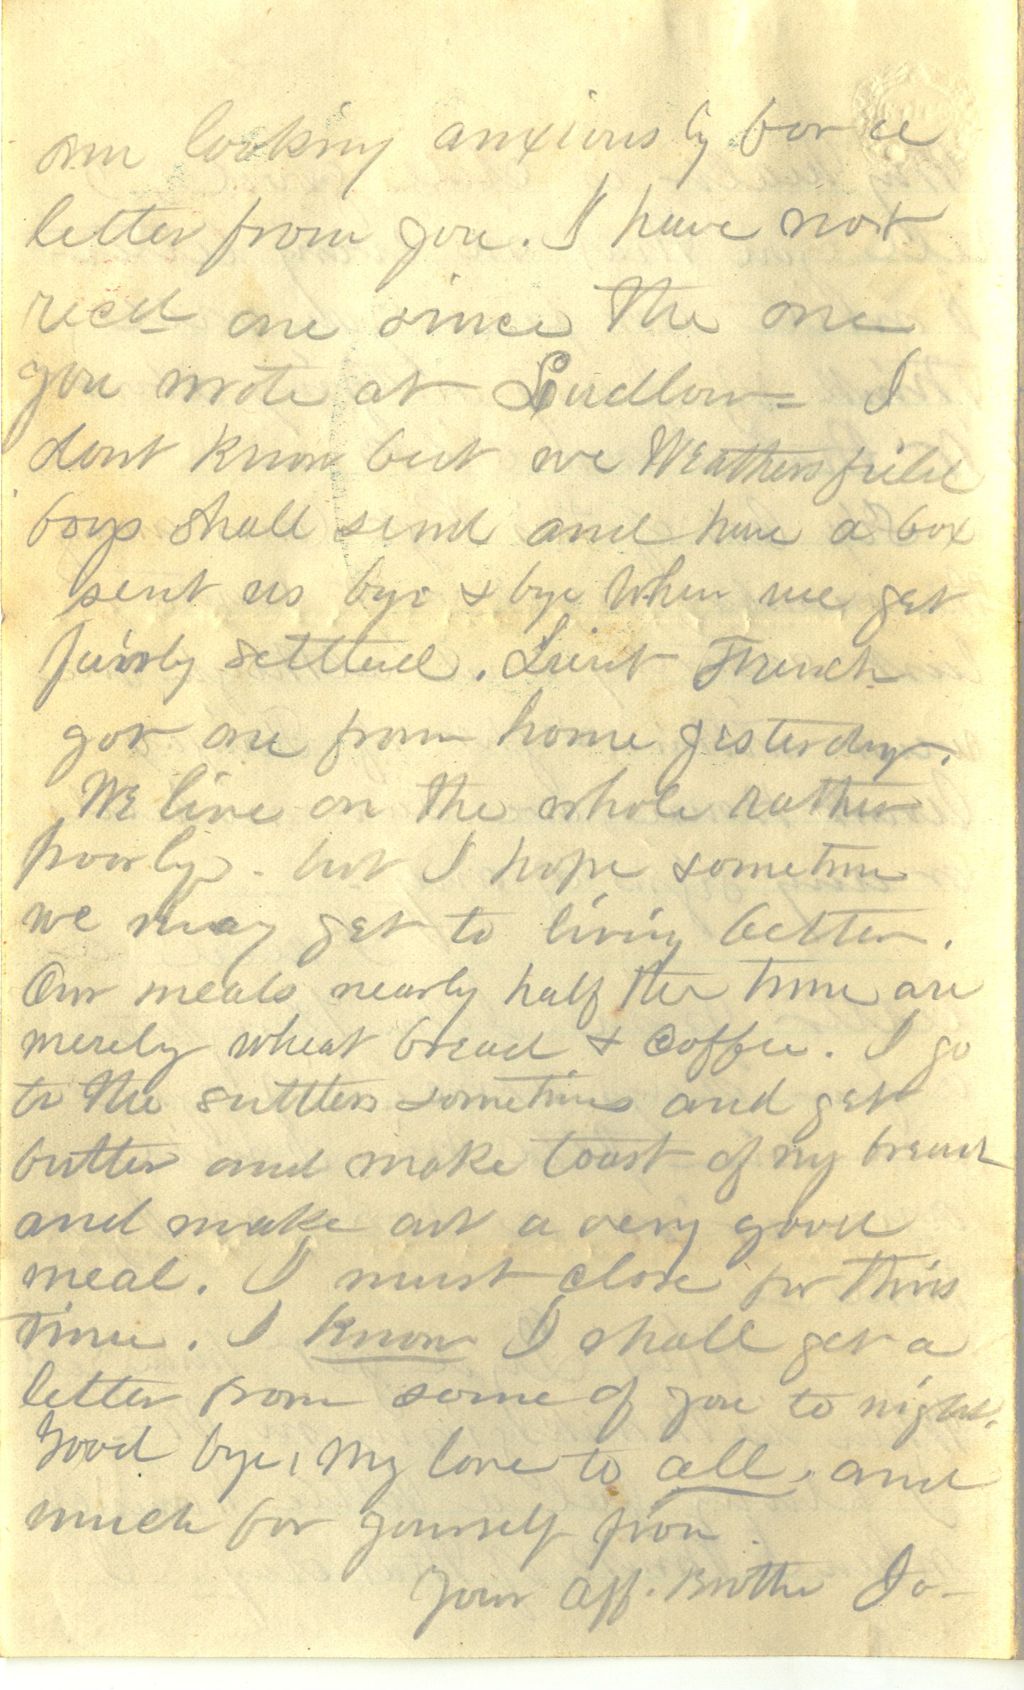 am looking anxiously for a
letter from you. I have not
recd one since the one
you wrote at Ludlow = I
dont know but we Weathersfield
boys shall send and have a box
sent us bye & bye when we get
fairly settled. Lieut French
got one from home yesterday.
We live on the whole rather
poorly - but I hope sometime
we may get to living better.
Our meals nearly half the time are
merely wheat bread & coffee. I go
to the suttlers sometimes and get
butter and make toast of my bread
and make out a very good
meal. I must close for this
time. I know I shall get a
letter from some of you to night.
Good bye, My love to all, and
much for yourself from
Your Aff. Brother Jo-